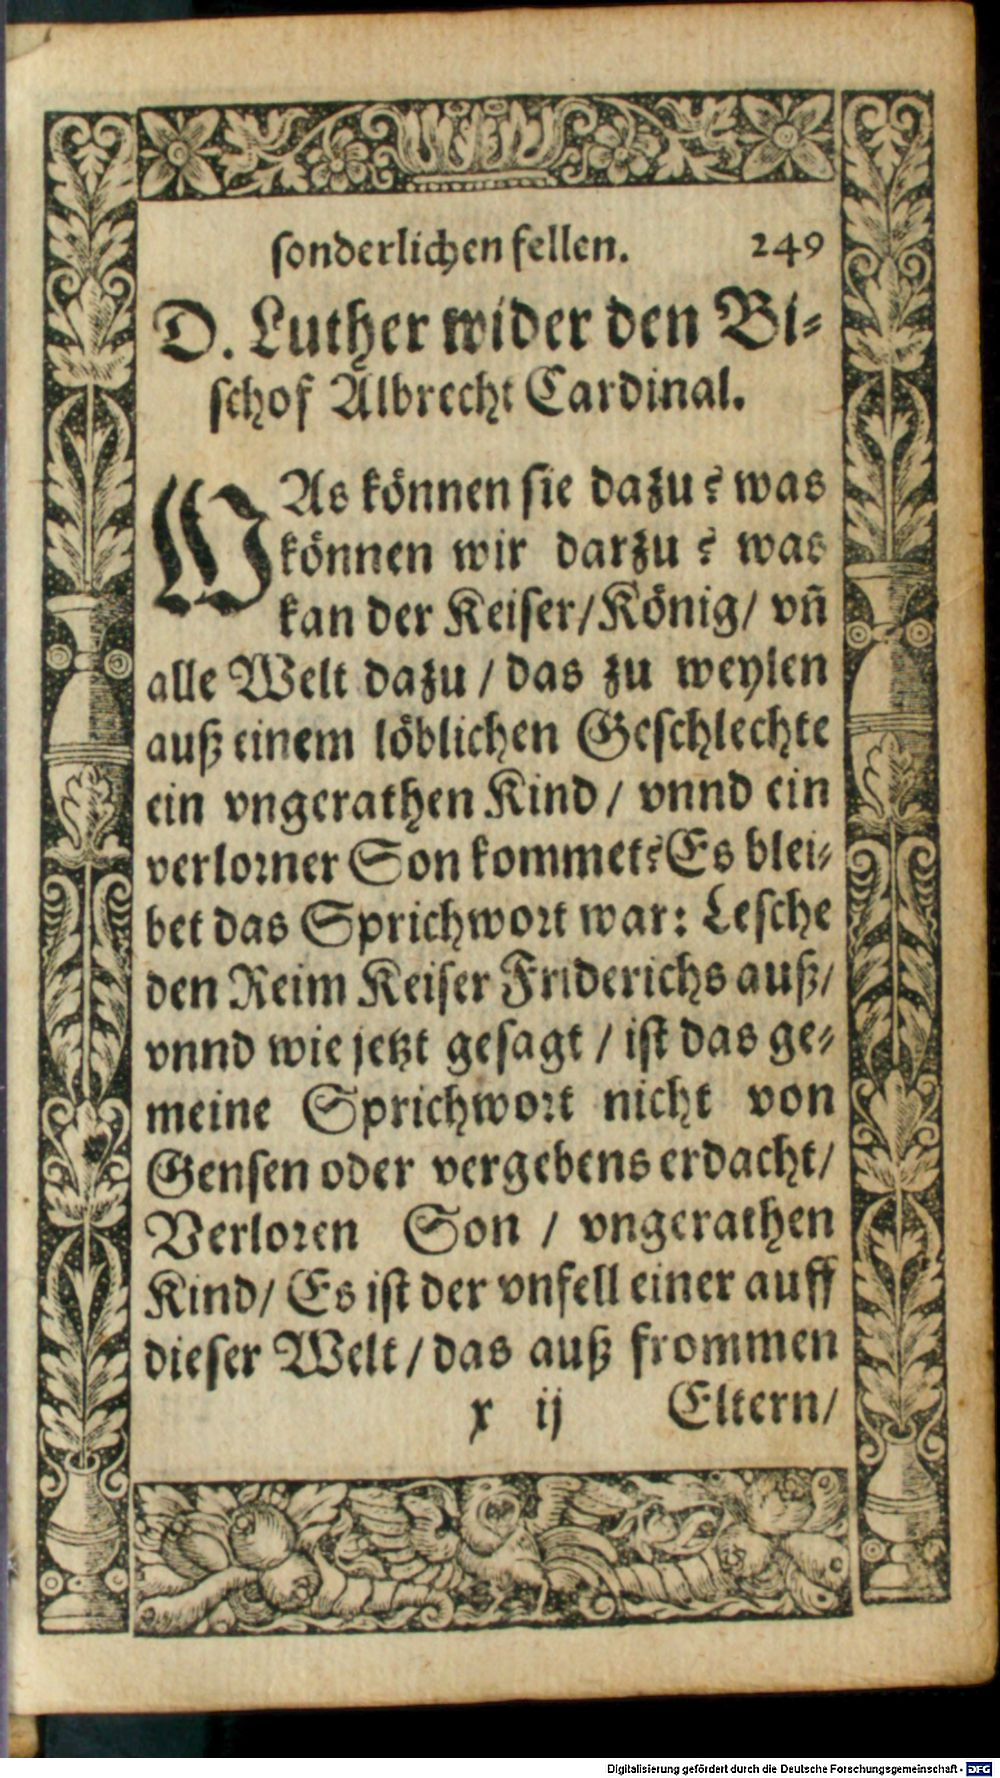 sonderlichen fellen. 249
D. Luther wider den Bi-
schof Albrecht Cardinal.
WAs können sie dazu? was
können wir darzu? was
kan der Keiser/König/ vñ
alle Welt dazu / das zu weylen
auß einem löblichen Geschlechte
ein vngerathen Kind / vnnd ein
verlorner Son kommet? Es blei-
bet das Sprichwort war: Lesche
den Reim Keiser Friderichs auß/
vnnd wie jetzt gesagt / ist das ge-
meine Sprichwort nicht von
Gensen oder vergebens erdacht/
Verloren Son / vngerathen
Kind/ Es ist der vnfell einer auff
dieser Welt / das auß frommen
x ij Eltern/
Digitalisierung gefördert durch die Deutsche Forschungsgemeinschaft - DFG